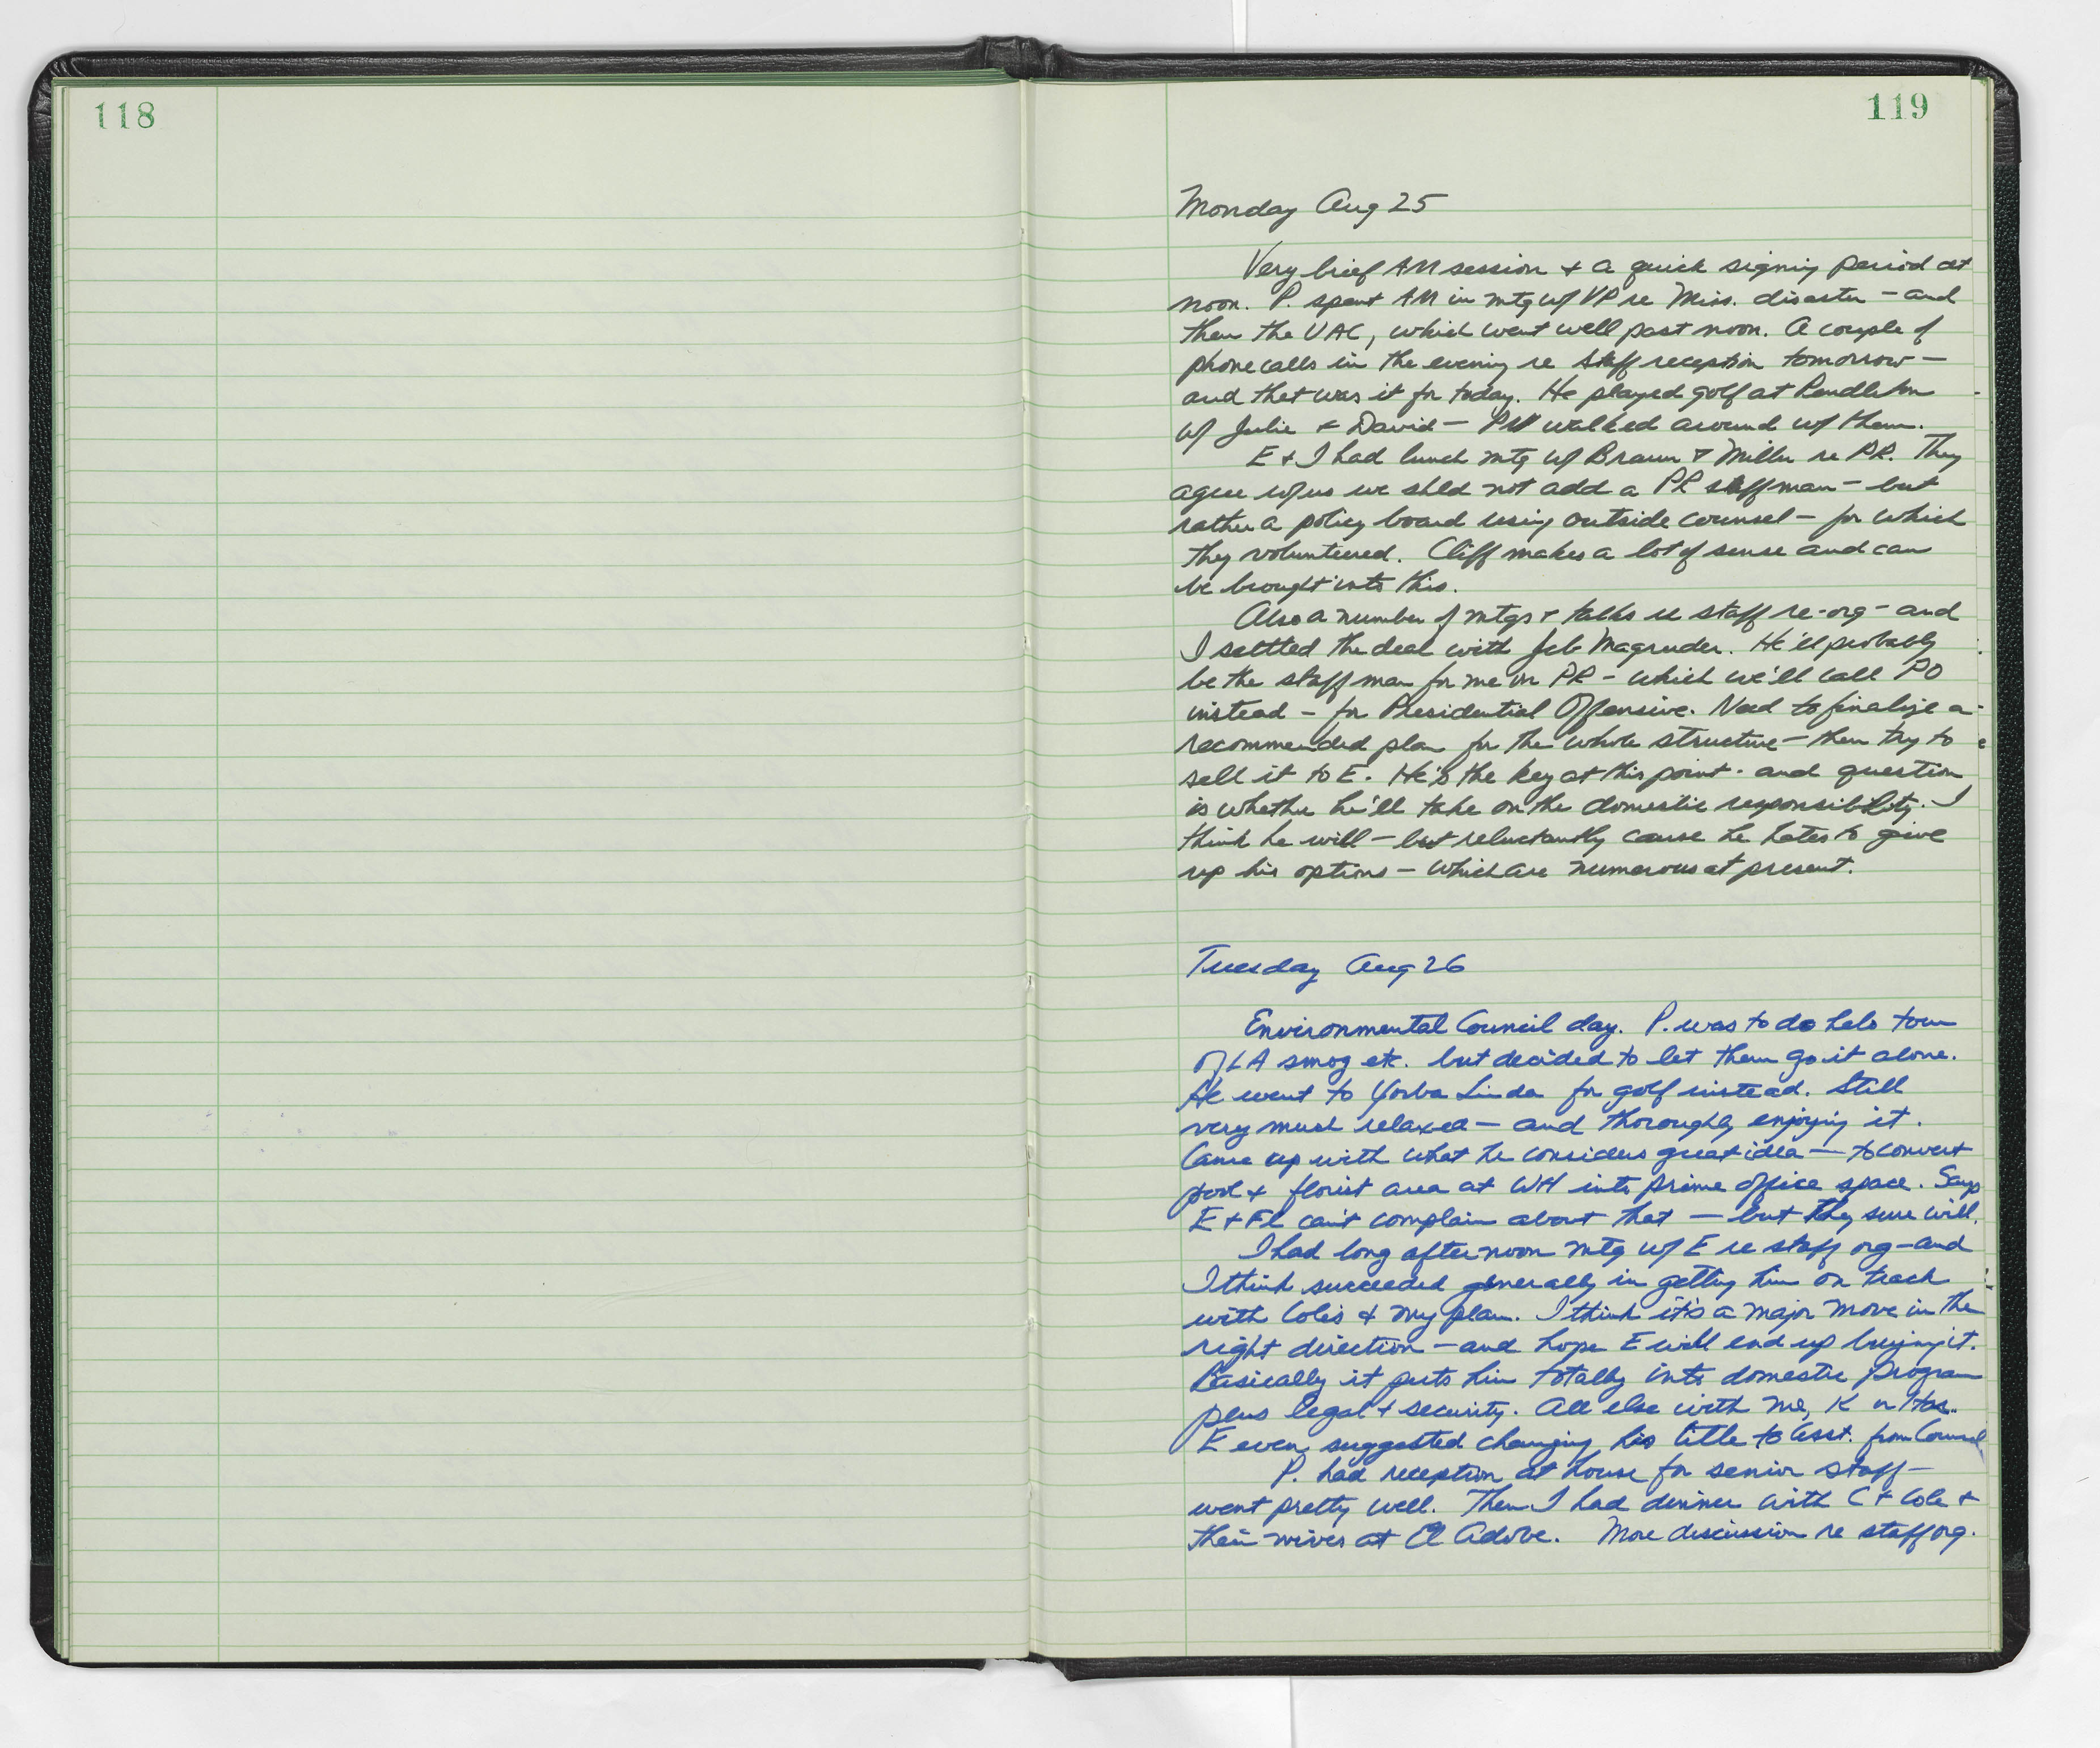 118
119
Monday Aug 25
Very brief AM session + a quick signing period at
noon. P. spent AM in mtg w/ VP re Miss. disaster – and
then the UAC, which went well past noon. A couple of
phone calls in the evening re staff reception tomorrow –
and that was it for today. He played golf at Pendleton
w/ Julie + David – PN walked around w/ them.
E + I had lunch mtg w/ Braun + Miller re PR. They
agree w/ us we shld not add a PR staff man – but
rather a policy board using outside counsel – for which
they volunteered. Cliff makes a lot of sense and can
be brought into this.
Also a number of mtgs + talks re staff re-org – and
I settled the deal with Jeb Magruder. He'll probably
be the staff man for me on PR – which we'll call PO
instead – for Presidential Offensive. Need to finalize a
recommended plan for the whole structure – then try to
sell it to E. He's the key at this point – and question
is whether he'll take on the domestic responsibility. I
think he will – but reluctantly cause he hates to give
up his options – which are numerous at present.
Tuesday Aug 26
Environmental Council day. P. was to do helo tour
of LA smog etc. but decided to let them go it alone.
He went to Yorba Linda for golf instead. Still
very much relaxed – and thoroughly enjoying it.
Came up with what he considers great idea – to convert
pool + florist area at WH into prime office space. Says
E + FL can't complain about that – but they sure will.
I had long afternoon mtg w/ E re staff org – and
I think succeeded generally in getting him on track
with Cole's + my plan. I think it's a major move in the
right direction – and hope E will end up buying it.
Basically it puts him totally into domestic program
plus legal + security. All else with me, K or Har.
E even suggested changing his title to Asst. from Counsel
P. had reception at house for senior staff –
went pretty well. Then I had dinner with C + Cole +
their wives at El Adobe. More discussion re staff org.